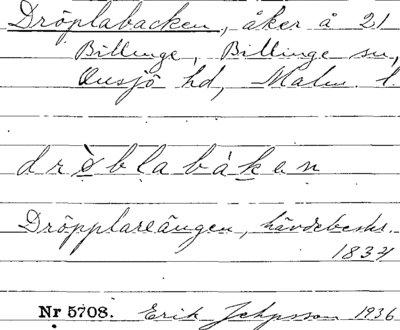 Dröplabacken, åker å 21
Billinge, Billinge sn,
Onsjö hd, Malm. l.
drèblabákan
Dröpplareängen, hävdebeskr.
1834
Nr 5708. Erik Jeppsson 1936